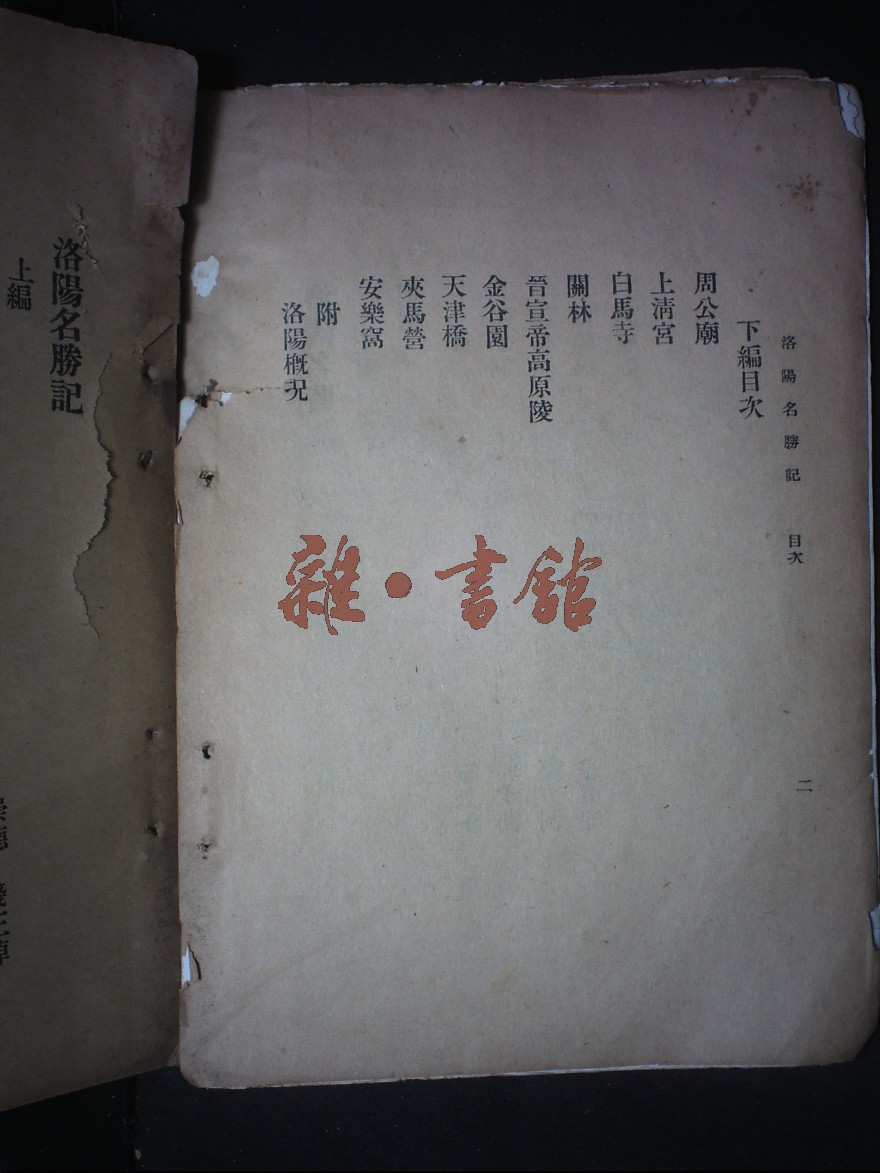 洛陽名勝記　目次
二
下編目次
周公廟
上淸宮
白馬寺
關林
晉宣帝高原陵
金谷園
天津橋
夾馬營
安樂窩
附
洛陽概况
雜·書館
洛陽名勝記
上編